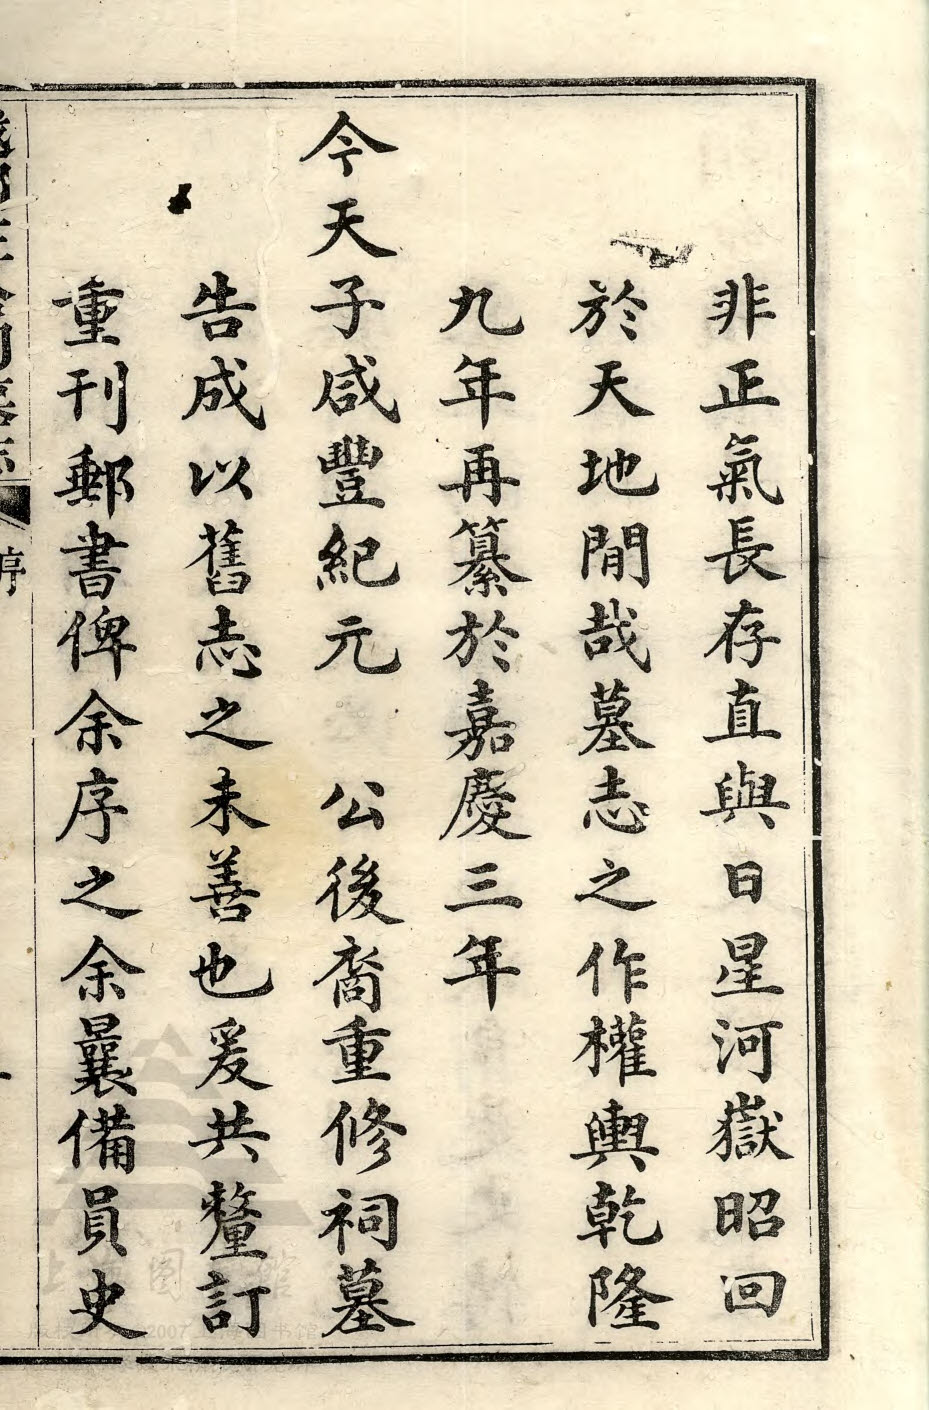 非正氣長存直與日星河嶽昭回
於天地閒哉墓志之作權輿乾隆
九年再纂於嘉慶三年
今天子咸豐紀元 公後裔重修祠墓
告成以舊志之未善也爰共釐訂
重刊郵書俾余序之余曩備員史
序
上海圖書館
2007 上海图书馆